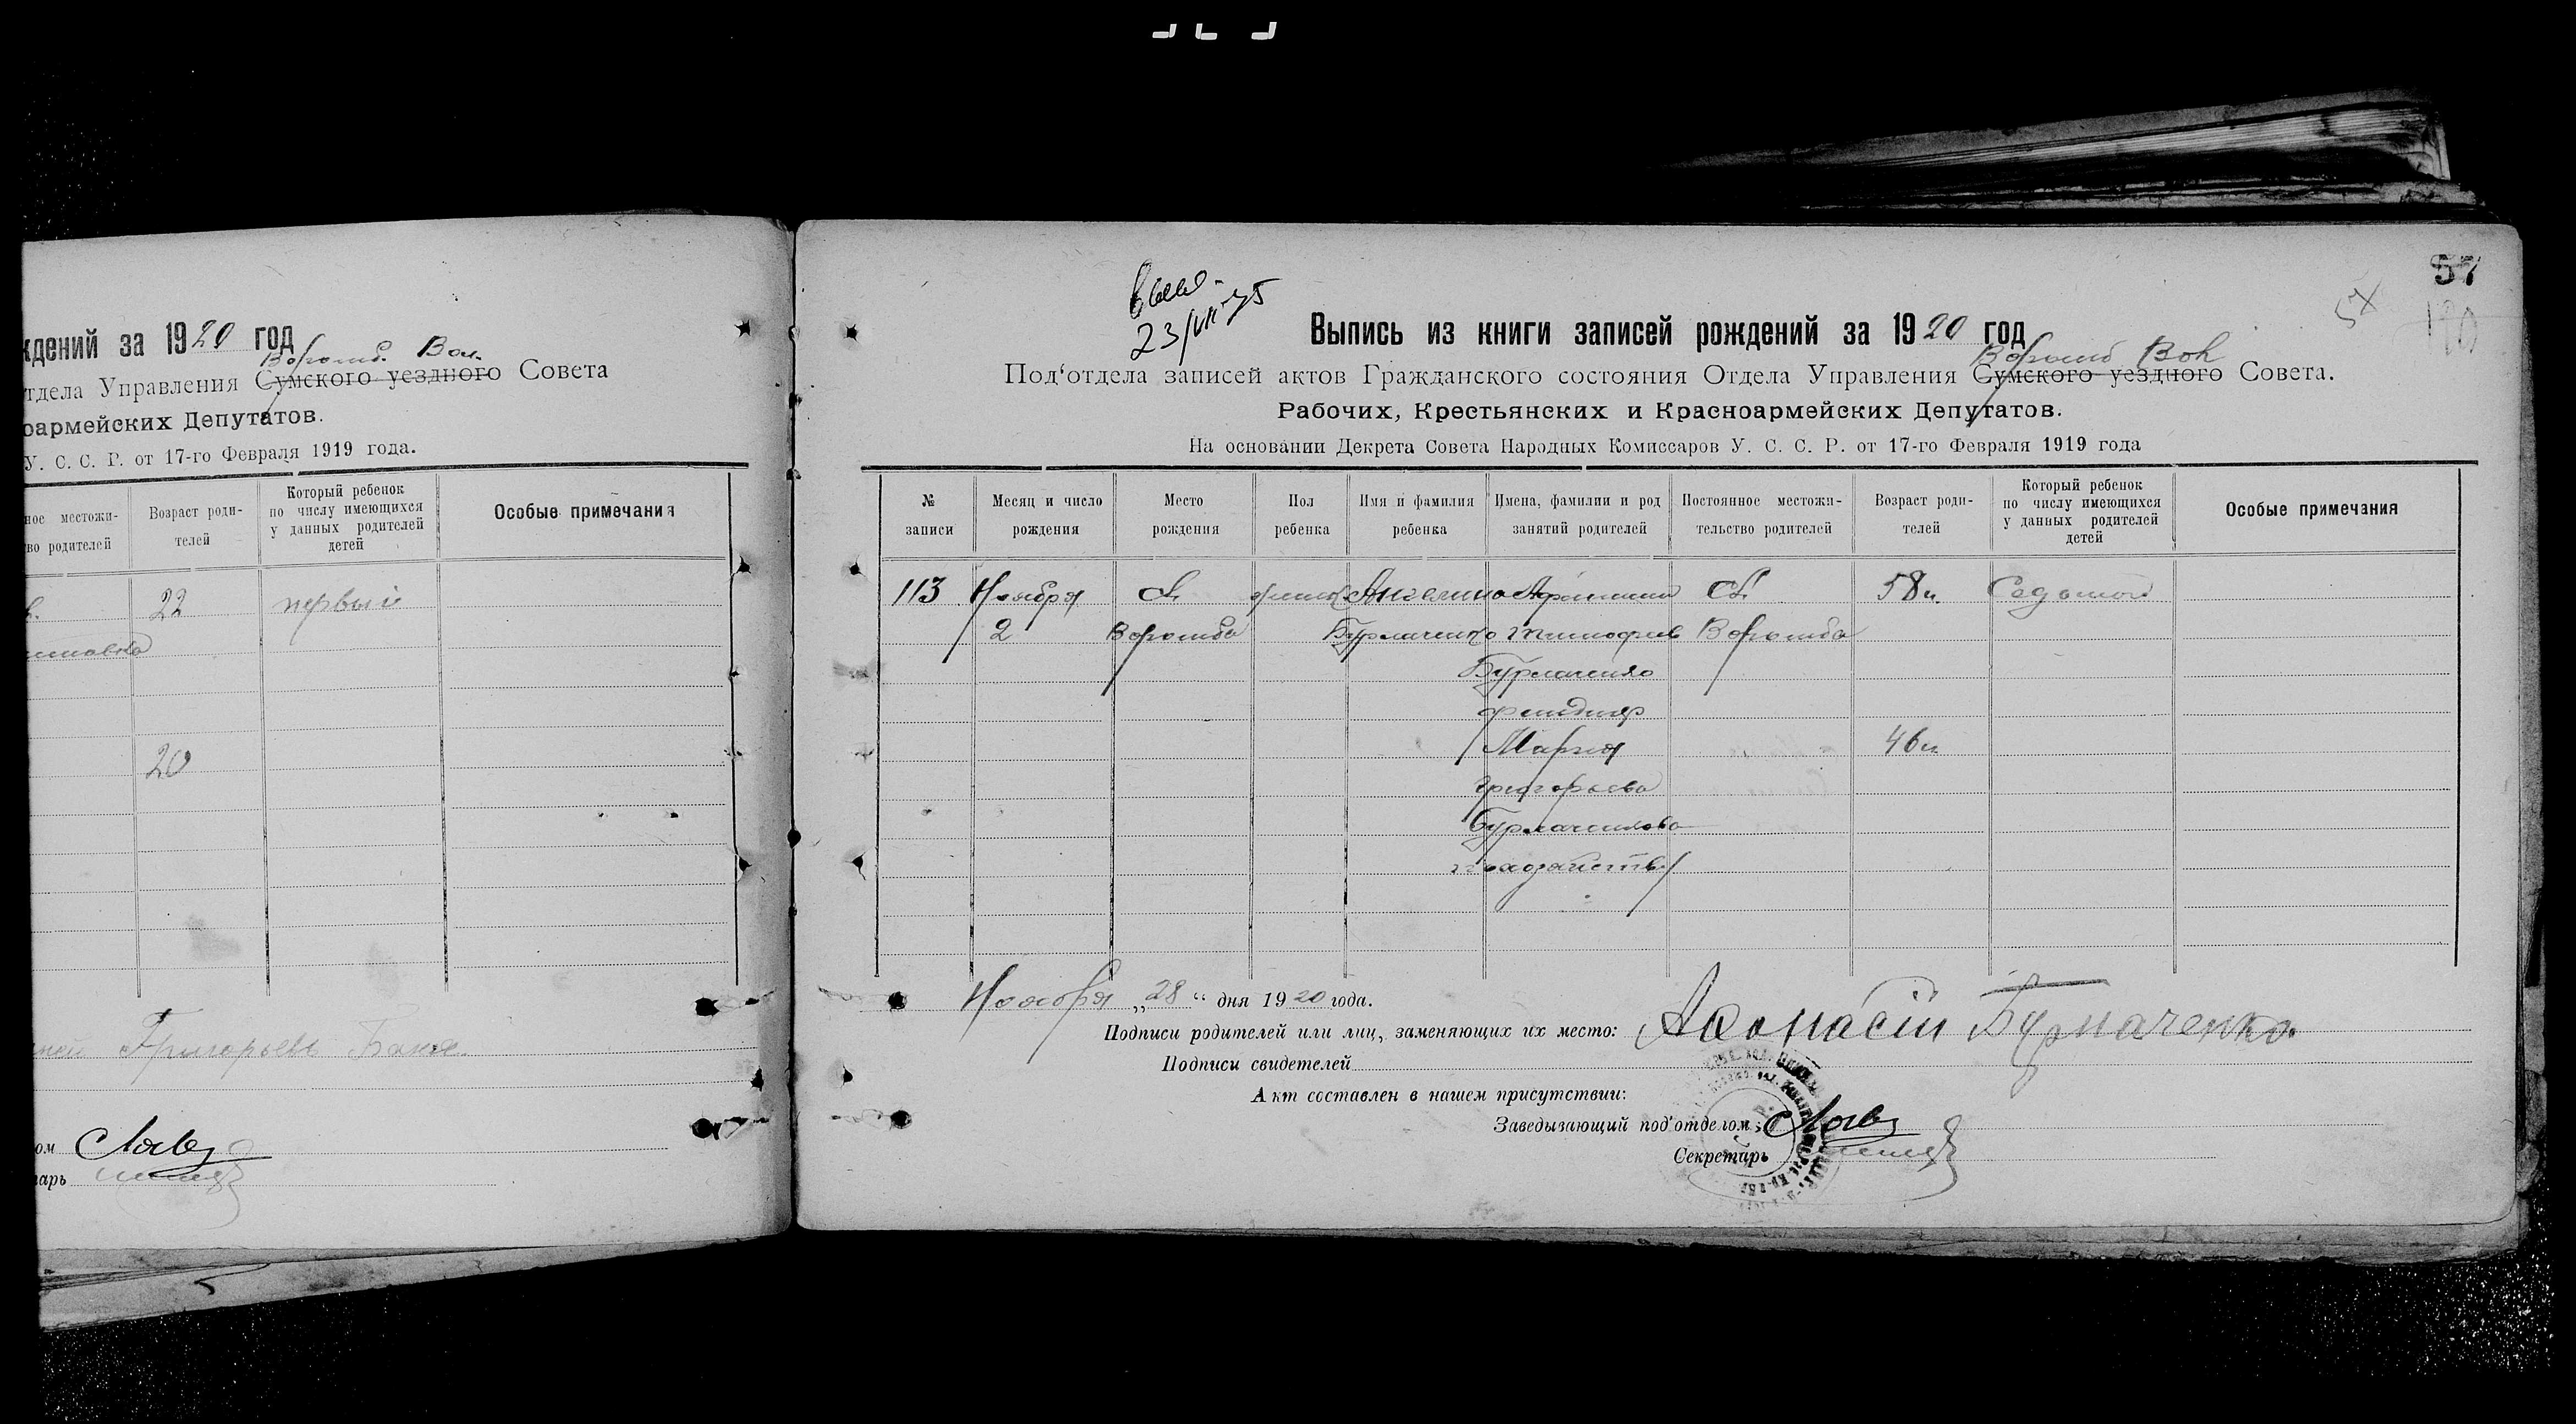 ждений за 1920 год
Ворож. Вол.
тдела Управления Сумского уездного Совета
оармейских Депутатов.
У. С. С. Р. от 17-го Февраля 1919 года.
ное местожи-
во родителей
Возраст роди-
телей
Который ребенок
по числу имеющихся
у данных родителей
детей
Особые примечания
22
первый
20
Григорьев
ом
арь
57
57
23/VII-75
Выпись из книги записей рождений за 1920 год
Под‘отдела записей актов Гражданского состояния Отдела Управления Сумского уездного Совета.
Рабочих, Крестьянских и Красноармейских Депутатов.
На основании Декрета Совета Народных Комиссаров У. С. С. Р. от 17-го Февраля 1919 года
№
записи
Месяц и число
рождения
Место
рождения
Пол
ребенка
Имя и фамилия
ребенка
Имена, фамилии и род
занятий родителей
Постоянное местожи-
тельство родителей
Возраст роди-
телей
Который ребенок
по числу имеющихся
у данных родителей
детей
Особые примечания
113 Ноября Сл. Ангелина Сл. 58 л. Седьмой
2 Ворожба Бурмаченко Тимофиев Ворожба
Бурмаченко
Мария 46 л.
Григорьева
Бурмаченкова
Ноября „28“ дня 1920 года.
Подписи родителей или лиц, заменяющих их место: Афонасій Бурмаченко
Подписи свидетелей
Акт составлен в нашем присутствии:
Заведывающий под‘отделом
Секретарь